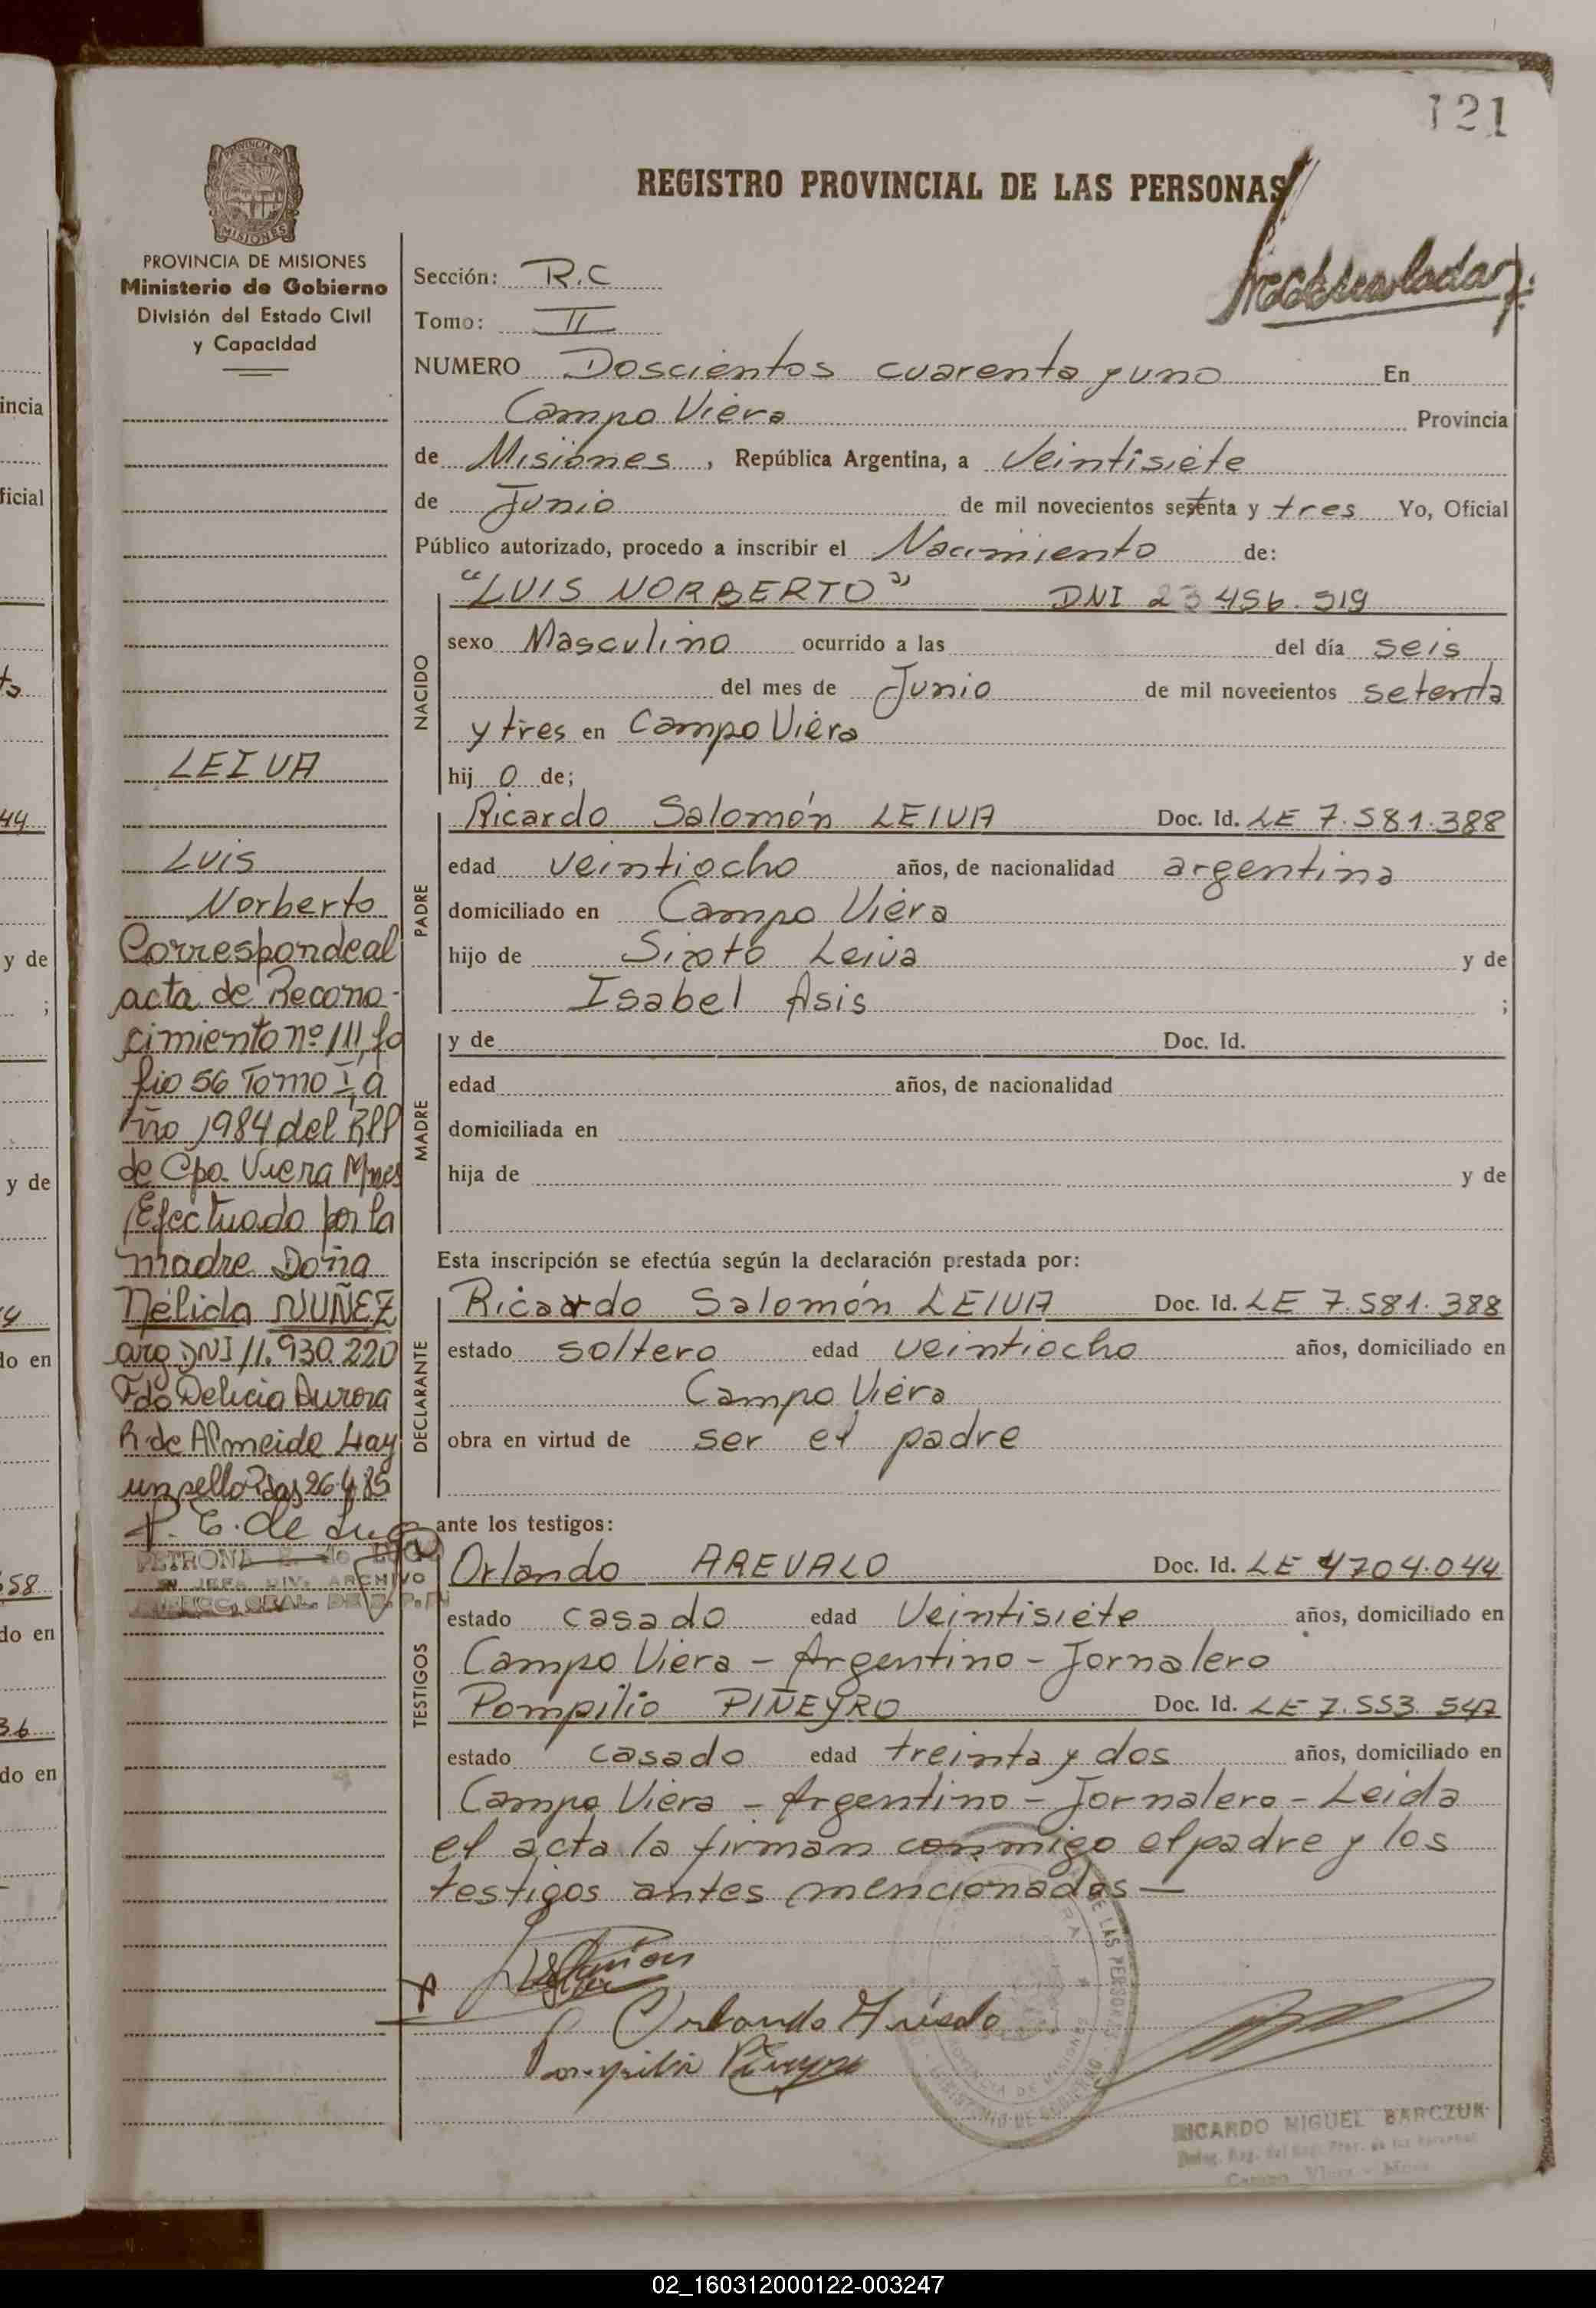 121
REGISTRO PROVINCIAL DE LAS PERSONAS
PROVINCIA DE
MISIONES
PROVINCIA DE MISIONES
Ministerio de Gobierno
División del Estado Civil
y Capacidad
Sección: R.C
Tomo: II
NUMERO Doscientos cuarenta y uno En
Campo Viera Provincia
de Misiones, República Argentina, a Veintisiete
de Junio de mil novecientos setenta y tres Yo, Oficial
Público autorizado, procedo a inscribir el Nacimiento de:
NACIDO
"LUIS NORBERTO" DNI 23 456.919
sexo Masculino ocurrido a las del día seis
del mes de Junio de mil novecientos setenta
y tres en Campo Viera
hij o de;
PADRE
Ricardo Salomón LEIVA Doc. Id. LE 7.581.388
edad veintiocho años, de nacionalidad argentina
domiciliado en Campo Viera
hijo de Sixto Leiva y de
Isabel Asis ;
MADRE
y de Doc. Id.
edad años, de nacionalidad
domiciliada en
hija de y de
Esta inscripción se efectúa según la declaración prestada por:
DECLARANTE
Ricardo Salomón LEIVA Doc. Id. LE 7.581.388
estado soltero edad veintiocho años, domiciliado en
Campo Viera
obra en virtud de ser el padre
ante los testigos:
TESTIGOS
Orlando AREVALO Doc. Id. LE 4704.044
estado casado edad Veintisiete años, domiciliado en
Campo Viera - Argentino - Jornalero
Pompilio PIÑEYRO Doc. Id. LE 7.553.547
estado casado edad treinta y dos años, domiciliado en
Campo Viera - Argentino - Jornalero - Leida
el acta la firman conmigo el padre y los
testigos antes mencionados —
RICARDO MIGUEL BARCZUK
LEIVA
Luis
Norberto
Corresponde al
acta de Recono-
cimiento nº 111, fo
lio 56 Tomo I, a
ño 1984 del RPP
de Cpo. Viera Mnes
Efectuado por la
madre Doña
Nélida NUÑEZ
arg DNI 11.930.220
Fdo Delicia Aurora
R. de Almeida Hay
un sello Pdas 26-4-85
P. E. de Lugo
PETRONA E. de LUGO
JEFA DIV. ARCHIVO
incia
ficial
44
y de
;
y de
do en
58
do en
36
do en
02_160312000122-003247